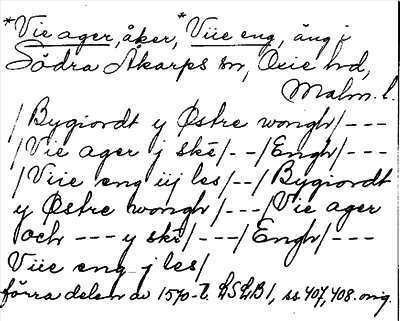 *Vie ager, åker, *Viie eng, äng i
Södra Åkarps sn, Oxie hd,
Malm. l.
/Bygiordt y Østre wongh/---
/Vie ager j skē/--/Engh/---
/Viie eng iij les/--/Bygiordt
y Østre wongh/---/Vie ager
och --- y skē/---/Engh/---
Viie eng j les/
förra delen av 1570-t. LSLB1, ss. 407, 408. orig.